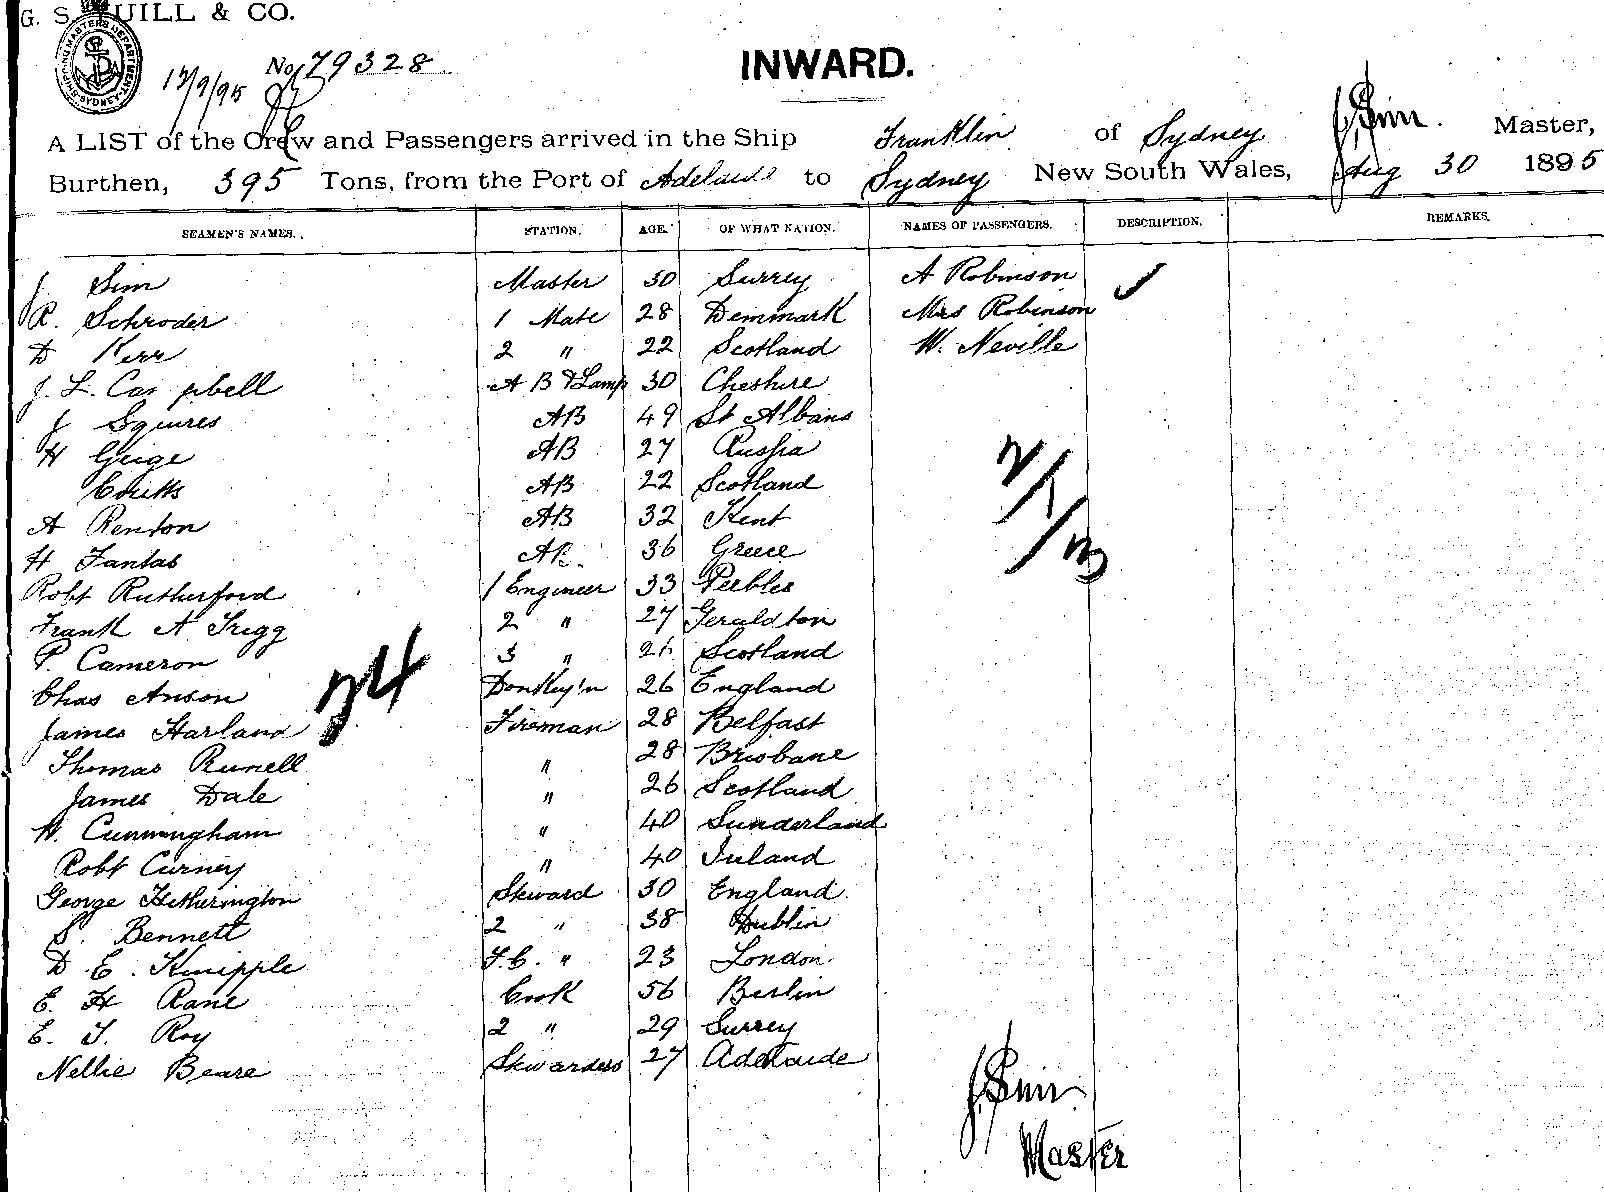 G. S. UILL & CO.
SHIPPING MASTERS DEPARTMENT SYDNEY
No 79328
12/9/95
INWARD.
A LIST of the Crew and Passengers arrived in the Ship Franklin of Sydney J. Sim. Master,
Burthen, 395 Tons, from the Port of Adelaide to Sydney New South Wales, Aug 30 1895
SEAMEN'S NAMES. STATION. AGE. OF WHAT NATION. NAMES OF PASSENGERS. DESCRIPTION. REMARKS.
J. Sim Master 30 Surrey A Robinson
R. Schroder 1 Mate 28 Denmmark Mrs Robinson
D Kerr 2 " 22 Scotland W. Neville
J. L. Campbell A B & Lamp 30 Cheshire
J Squires AB 49 St Albans
H Geige AB 27 Russia
Coutts AB 22 Scotland
A Renton AB 32 Kent
H Fantas AB. 36 Greece
Robt Rutherford 1 Engineer 33 Peebles
Frank A Trigg 2 " 27 Geraldton
P. Cameron 3 " 26 Scotland
Chas Anson Donkey'n 26 England
24
James Harland Fireman 28 Belfast
Thomas Runell " 28 Brisbane
James Dale " 26 Scotland
W. Cunningham " 40 Sunderland
Robt Curney " 40 Ireland
George Hetherington Steward 30 England
S. Bennett 2 " 38 Dublin
D. E. Knipple F.C. " 23 London.
E. H Rane Cook 56 Berlin
E. T. Roy 2 " 29 Surrey
Nellie Beare Stewardess 27 Adelaide
2/1/3
J. Sim
Master